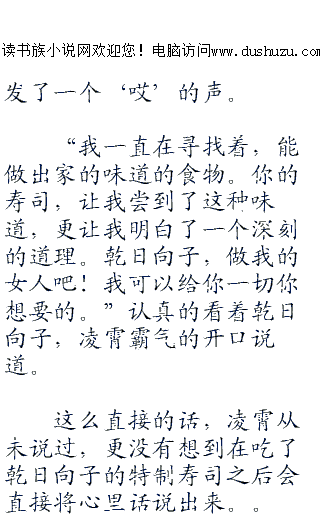 读书族小说网欢迎您！电脑访问www.dushuzu.com
发了一个‘哎’的声。
“我一直在寻找着，能
做出家的味道的食物。你的
寿司，让我尝到了这种味
道，更让我明白了一个深刻
的道理。乾日向子，做我的
女人吧！我可以给你一切你
想要的。”认真的看着乾日
向子，凌霄霸气的开口说
道。
这么直接的话，凌霄从
未说过，更没有想到在吃了
乾日向子的特制寿司之后会
直接将心里话说出来。。